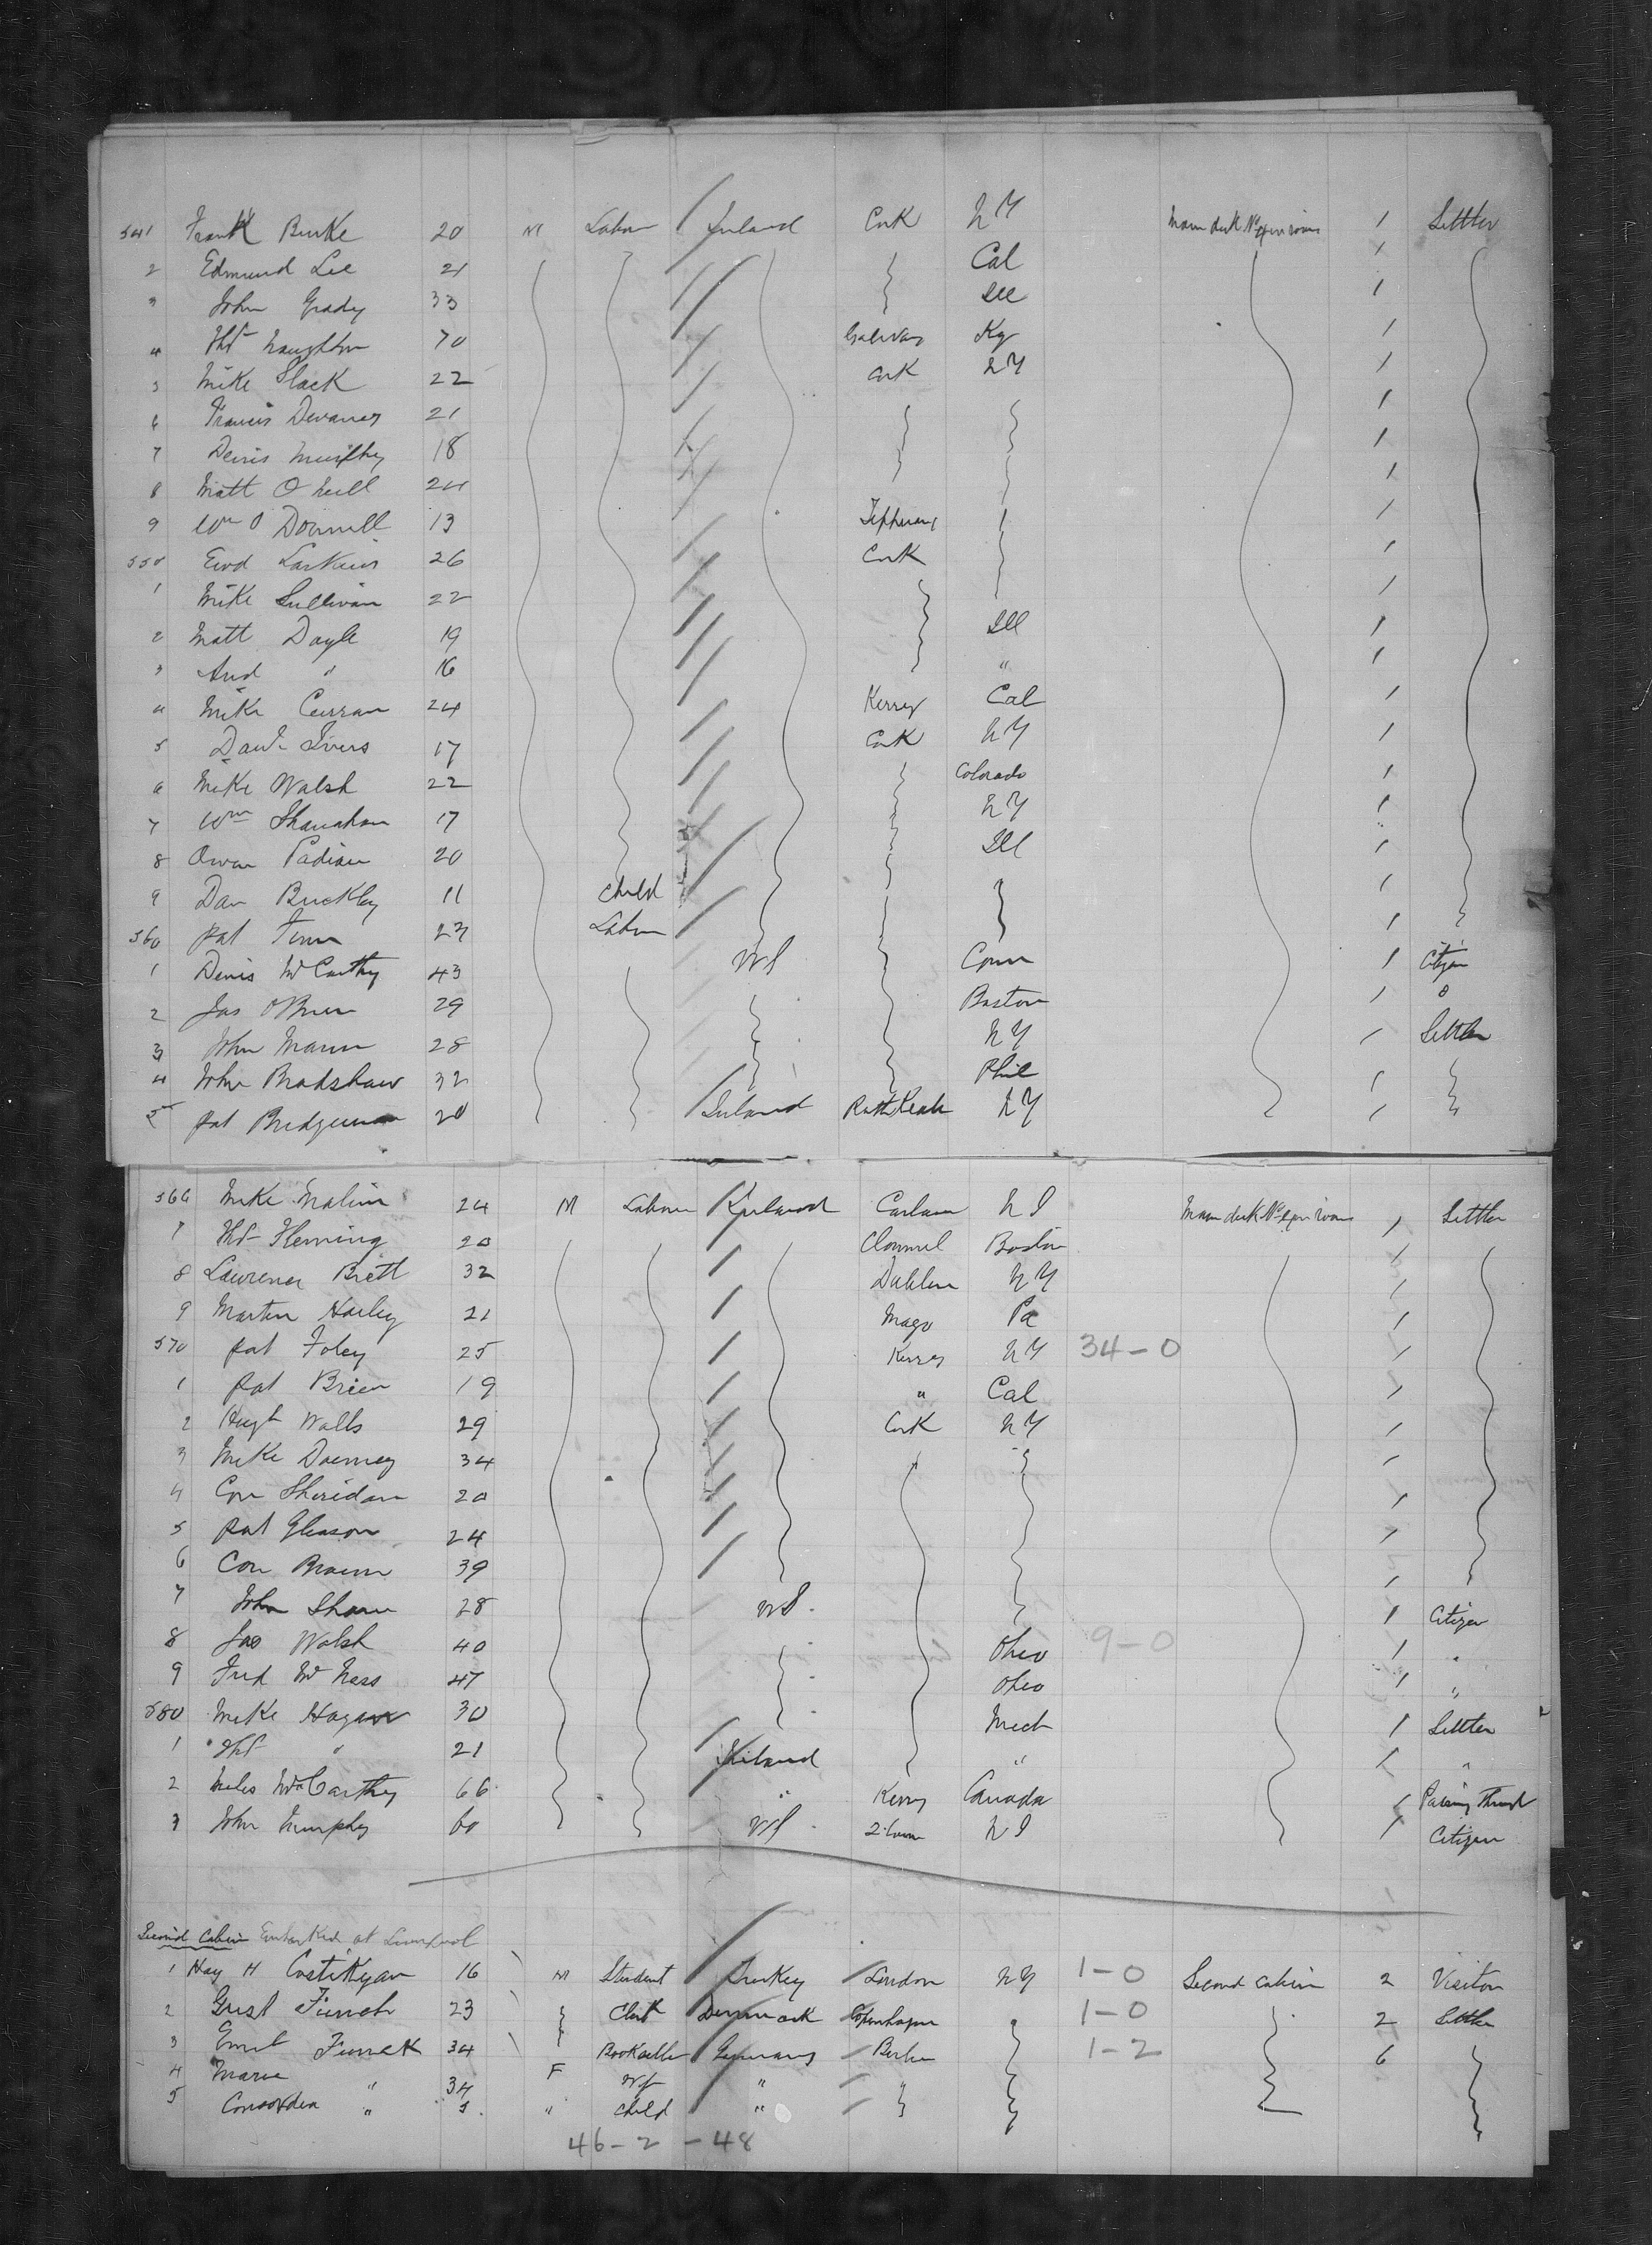 541 Frank Burke 20 M Labor Ireland Cork N Y Main deck No 1 / Settler
2 Edmund Lee 21 Cal /
3 John Grady 33 Ill /
4 Thos Naughton 70 Galway Ky /
5 Mike Slack 22 Cork N Y /
6 Francis Devaney 21 /
7 Denis Murphy 18 /
8 Matt O Neill 24 /
9 Wm O Donnell 13 Tipperary /
550 Ewd Larkins 26 Cork /
1 Mike Sullivan 22 /
2 Matt Doyle 19 Ill /
3 And " 16 " /
4 Mike Curran 24 Kerry Cal /
5 Danl Ivers 17 Cork N Y /
6 Mike Walsh 22 Colorado /
7 Wm Shanahan 17 N Y /
8 Owen Padian 20 Ill /
9 Dan Buckley 11 Child /
560 Pat Finn 23 Labor /
1 Denis McCarthy 43 U S Conn / Citizen
2 Jas O'Brien 29 Boston / "
3 John Mann 28 N Y / Settler
4 John Bradshaw 32 Phil /
5 Pat Bridgeman 20 Ireland Rathkeale N Y /
566 Mike Malin 24 M Labor Ireland Carlow N J Main deck / Settler
7 Thos Fleming 20 Clonmel Boston /
8 Lawrence Brett 32 Dublin N Y /
9 Martin Harley 21 Mayo Pa /
570 Pat Foley 25 Kerry N Y 34-0 /
1 Pat Brien 19 " Cal /
2 Hugh Walls 29 Cork N Y /
3 Mike Downey 34 /
4 Con Sheridan 20 /
5 Pat Gleason 24 /
6 Con Brown 39 /
7 John Shaw 28 U S / Citizen
8 Jas Walsh 40 Ohio 9-0 / "
9 Fred McNess 47 Ohio / "
580 Mike Hogan 30 Mich / Settler
1 Thos " 21 Ireland " / "
2 Miles McCarthy 66 " Kerry Canada / Passing Through
3 John Murphy 60 U S N J / Citizen
Second Cabin Embarked at Liverpool
1 Hay H Costikyan 16 M Student Turkey London N Y 1-0 Second Cabin 2 Visitor
2 Gust Funch 23 Clerk Denmark Copenhagen 1-0 2 Settler
3 Ernst Funck 34 Bookseller Germany Berlin 1-2 6
4 Marie " 34 F Wf "
5 Concordia " " Child "
46-2-48